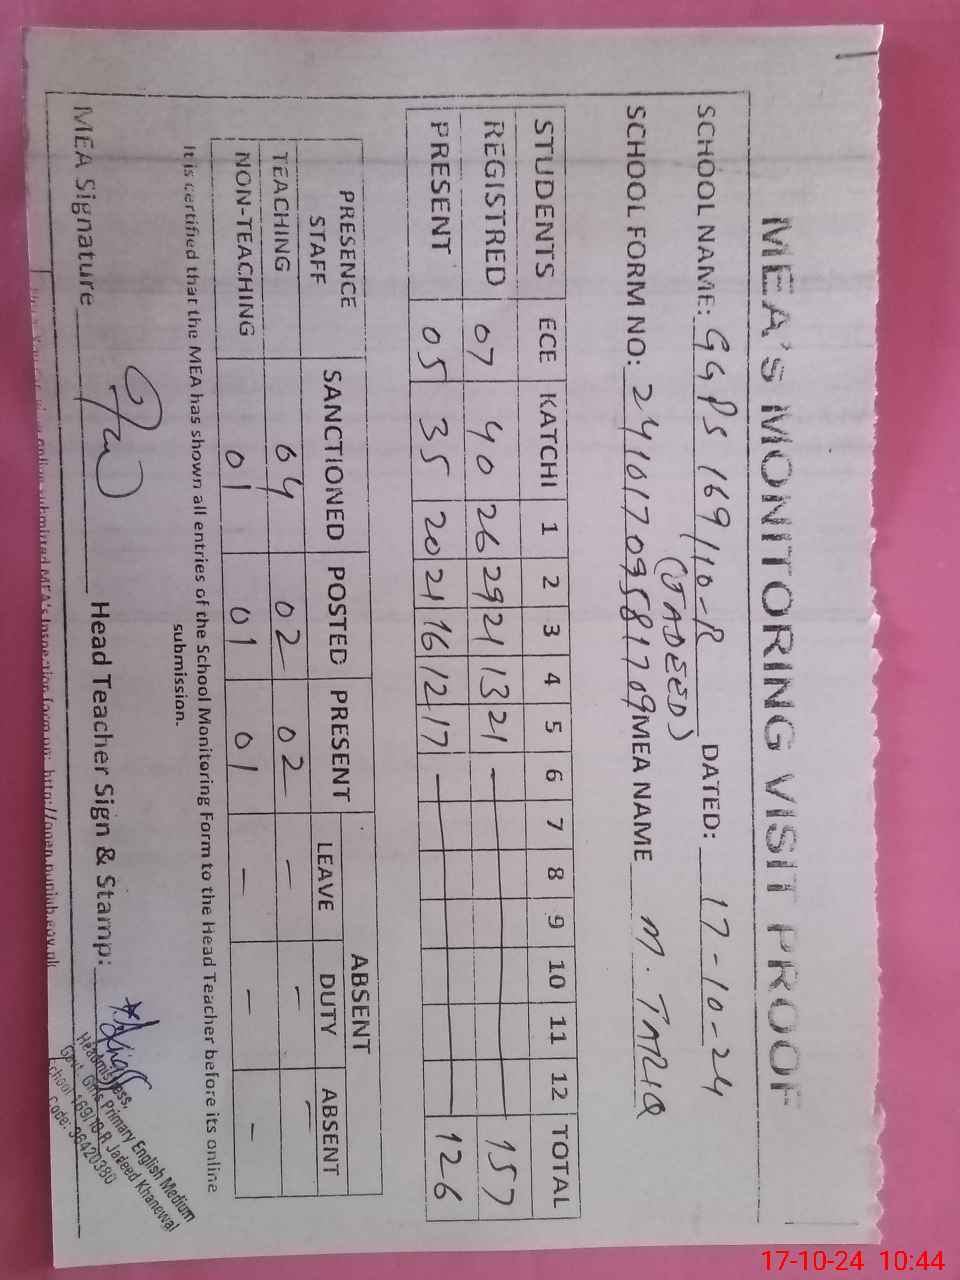 MEA'S MONITORING VISIT PROOF
SCHOOL NAME: GGPS 169/10-R DATED: 17-10-24
(JADEED)
SCHOOL FORM NO: MEA NAME M. TARIQ
STUDENTS ECE KATCHI 1 2 3 4 5 6 7 8 9 10 11 12 TOTAL
REGISTRED 07 40 26 29 21 13 21 — 157
PRESENT 05 35 20 21 16 12 17 — 126
PRESENCE STAFF SANCTIONED POSTED PRESENT ABSENT
LEAVE DUTY ABSENT
TEACHING 04 02 02 — — —
NON-TEACHING 01 01 01 — — —
It is certified that the MEA has shown all entries of the School Monitoring Form to the Head Teacher before its online
submission.
MEA Signature Head Teacher Sign & Stamp:
Headmistress,
Govt. Girls Primary English Medium
School 169/10-R Jadeed Khanewal
Code: 36420380
online submitted MEA's Inspection form on: http://open.punjab.gov.pk
17-10-24 10:44